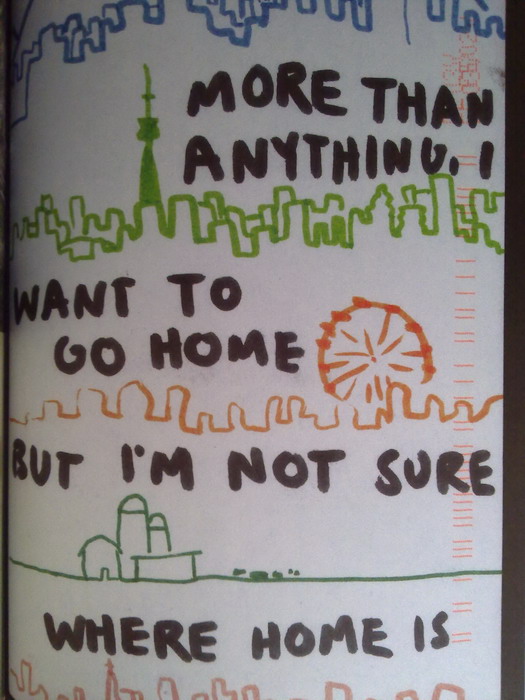 MORE THAN
ANYTHING, I
WANT TO
GO HOME
BUT I'M NOT SURE
WHERE HOME IS